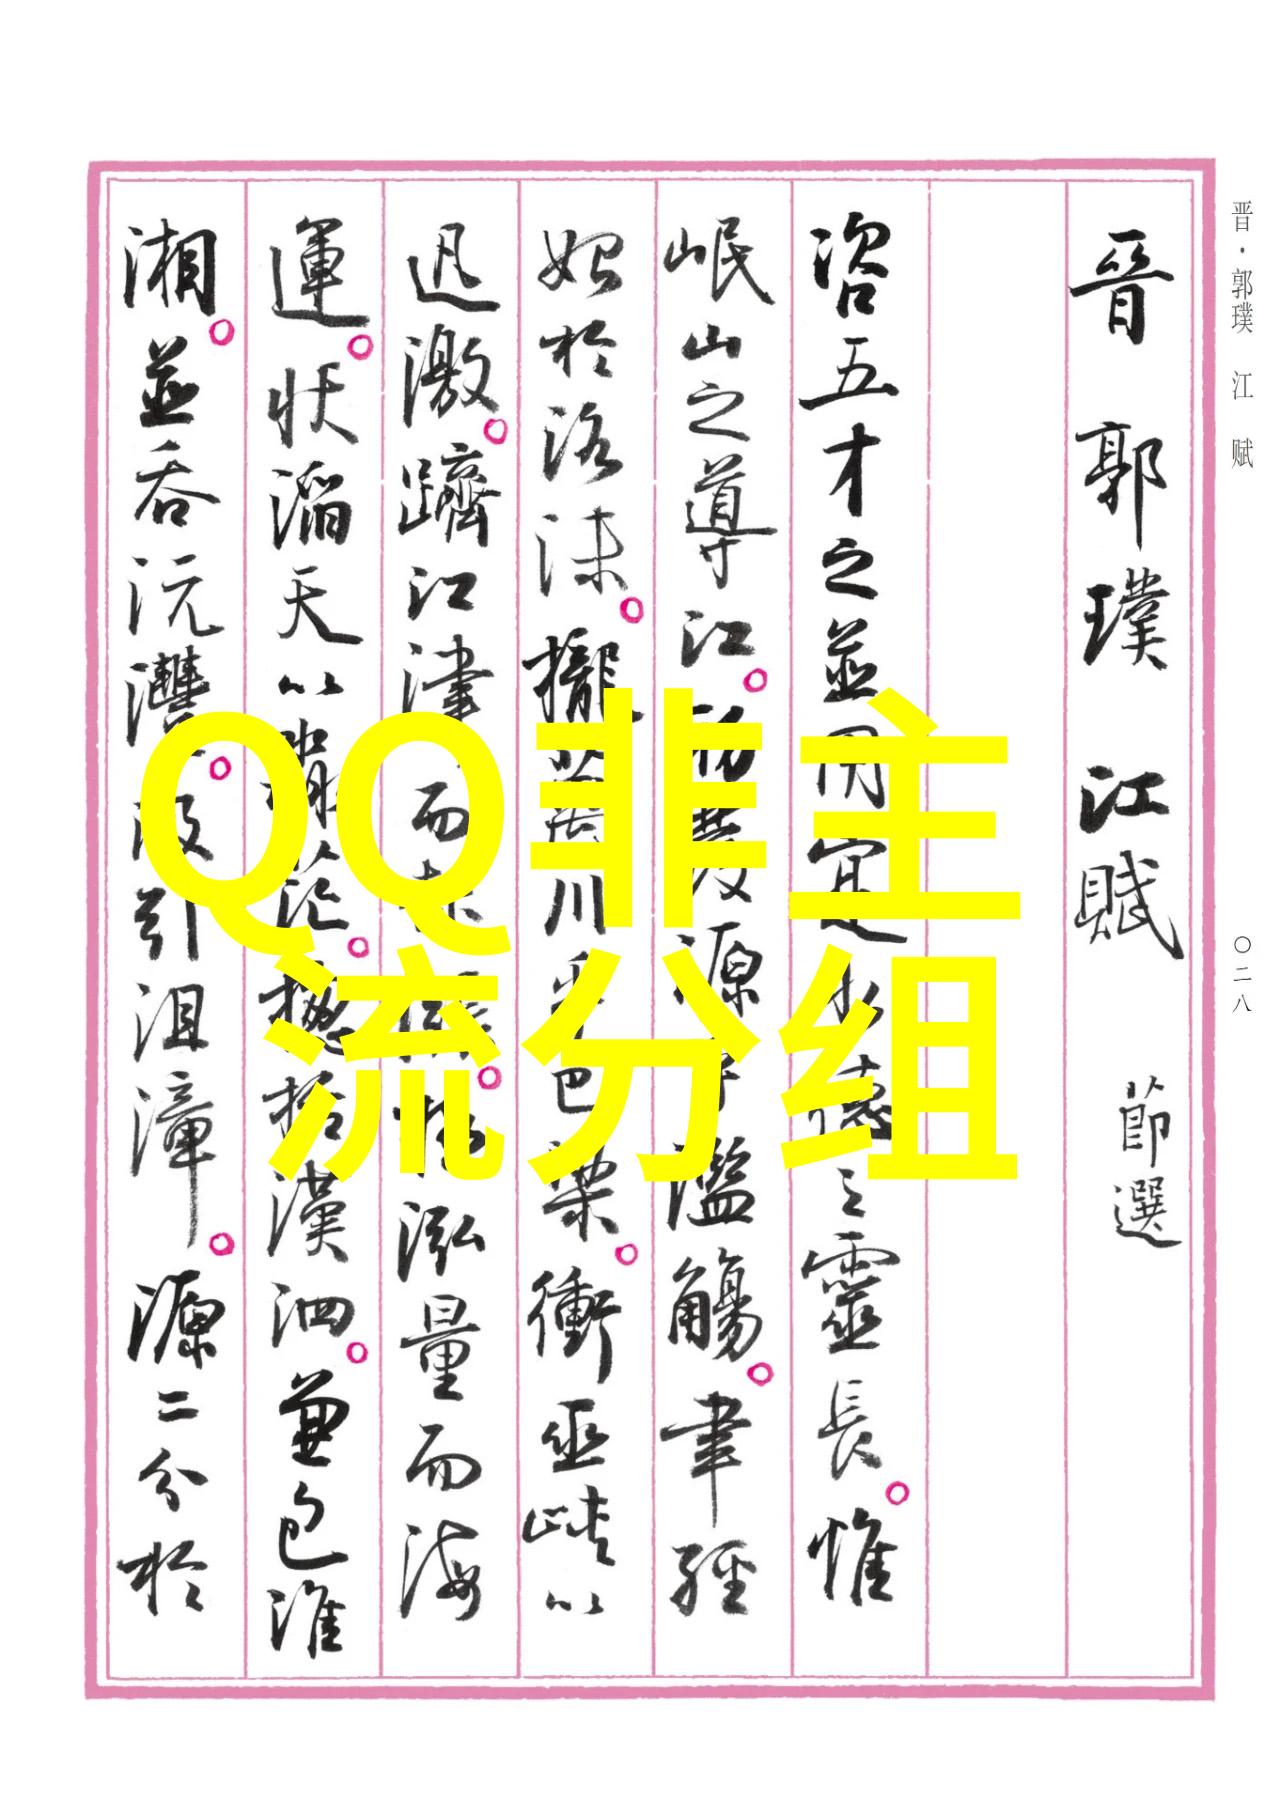 晋·郭璞 江 赋
〇二八
晉郭璞江賦節選
咨五才之並用寔水德之靈長。惟
岷山之導江。初發源乎濫觴。聿經
始於洛沫。攏萬川乎巴梁。衝巫峽以
迅激。躋江津而起漲。極泓量而海
運。狀滔天以茫。揔括漢泗。兼包淮
湘。並吞沅灃。汲引沮漳。源二分於
QQ非主
流分组